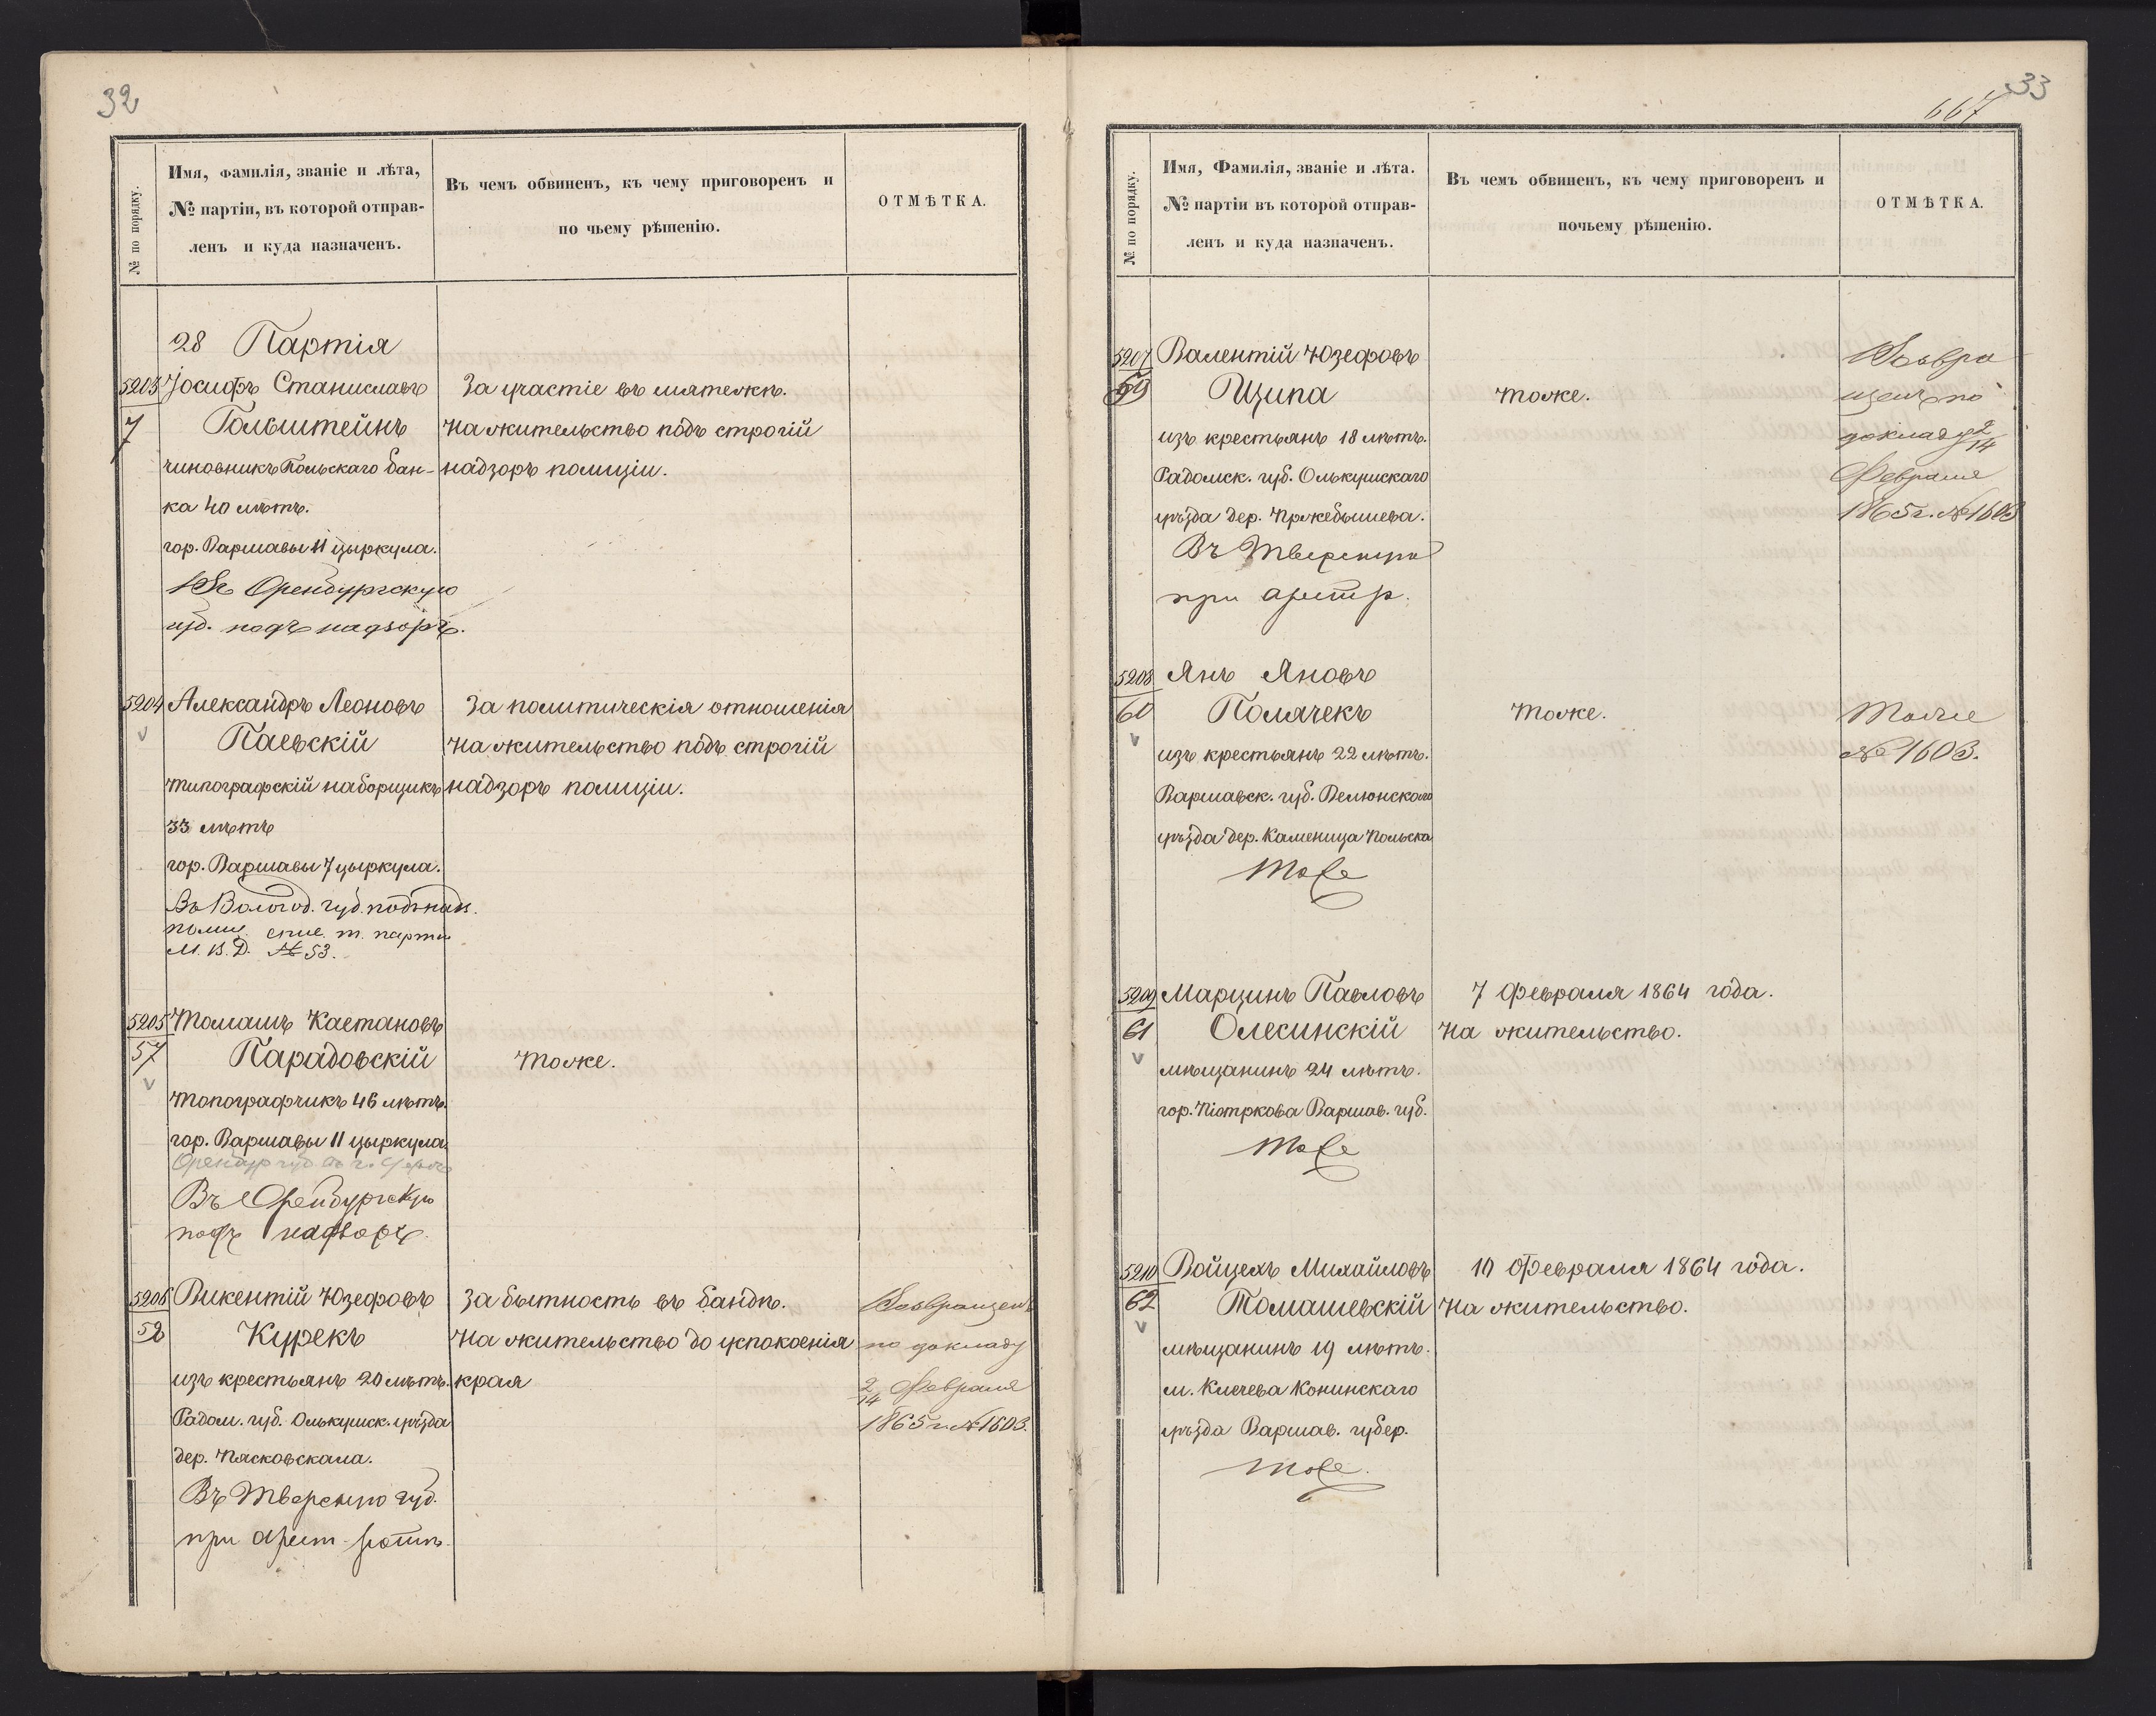 32
№ по порядку.
Имя, фамилія, званіе и лѣта,
№ партіи, въ которой отправ-
ленъ и куда назначенъ.
Въ чемъ обвиненъ, къ чему приговоренъ и
по чьему рѣшенію.
ОТМѢТКА.
28 Партія
5203 Іосифъ Станиславъ
7 Гольштейнъ
чиновникъ Польскаго бан-
ка 40 лѣтъ.
гор. Варшавы 11 цыркула.
Въ Оренбургскую
губ. подъ надзоръ.
За участіе въ мятежѣ.
На жительство подъ строгій
надзоръ полиціи.
5204 Александръ Леоновъ
Паевскій
типографскій наборщикъ
33 лѣтъ
гор. Варшавы 7 цыркула.
Въ Вологод. губ. подъ над.
полиц. спис. т. партіи
М. В. Д. № 53.
За политическія отношенія
На жительство подъ строгій
надзоръ полиціи.
5205 Томашъ Каетановъ
57 Парадовскій
топографчикъ 46 лѣтъ.
гор. Варшавы 11 цыркула
Оренбур губ въ г.
Въ Оренбургскую
подъ надзоръ.
Тоже.
5206 Викентій Юзефовъ
58 Курекъ
изъ крестьянъ 20 лѣтъ.
Радом. губ. Олькушск. уѣзда
дер. Пясковскала.
Въ Тверскую губ.
при арест. ротѣ.
За бытность въ бандѣ.
На жительство до успокоенія
края
Возвращенъ
по докладу
2/14 Февраля
1865 г. № 1603.
33
667
№ по порядку.
Имя, Фамилія, званіе и лѣта.
№ партіи въ которой отправ-
ленъ и куда назначенъ.
Въ чемъ обвиненъ, къ чему приговоренъ и
почьему рѣшенію.
ОТМѢТКА.
5207 Валентій Юзефовъ
59 Щипа
изъ крестьянъ 18 лѣтъ.
Радомск. губ. Олькушскаго
уѣзда дер. Пржебышева.
Въ Тверскую
при арест. р.
Тоже.
Возвра
щенъ по
докладу 2/14
Февраля
1865 г. № 1603
5208 Янъ Яновъ
60 Полячекъ
изъ крестьянъ 22 лѣтъ.
Варшавск. губ. Велюнскаго
уѣзда дер. Каменица Польска
Тоже
Тоже.
Тоже
№ 1603.
5209 Марцинъ Павловъ
61 Олесинскій
мѣщанинъ 24 лѣтъ.
гор. Піотркова Варшав. губ.
Тоже
7 Февраля 1864 года.
На жительство.
5210 Войцехъ Михайловъ
62 Томашевскій
мѣщанинъ 19 лѣтъ.
м. Клечева Конинскаго
уѣзда Варшав. губер.
Тоже.
10 Февраля 1864 года.
На жительство.